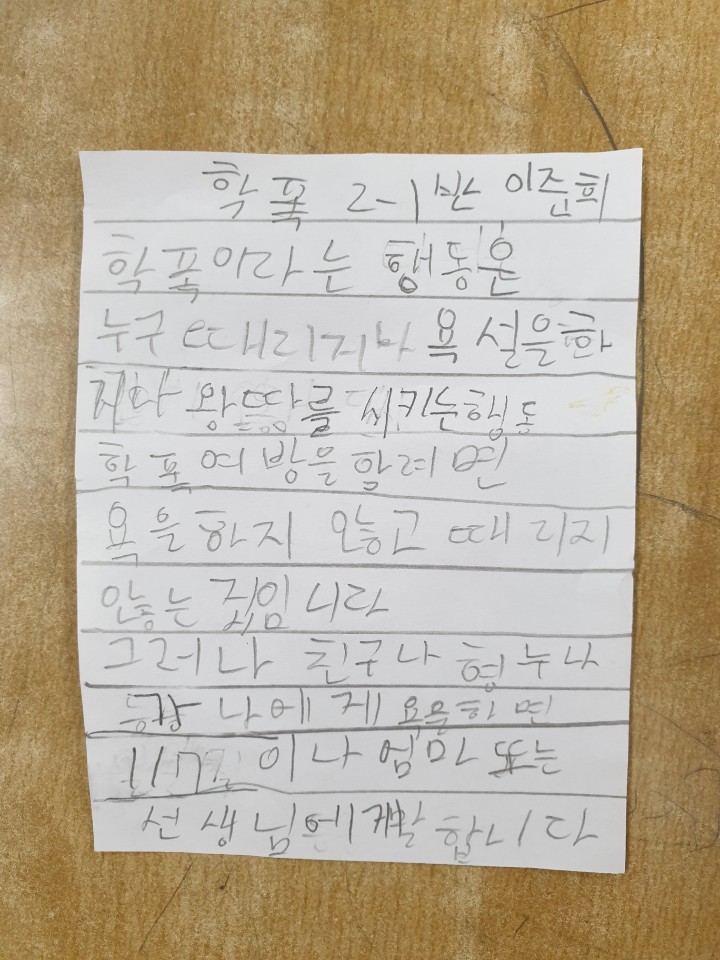 학폭 2-1반 이준희
학폭이라는 행동은
누구 때리거나 욕설을하
거나 왕따를 씨키는행동
학폭여방을할려면
욕을하지 않고 때리지
안놓는 짓입니다
그러나 친구나 형누나
동생 나에게 욕을하면
117 이나 엄마 또는
선생님에게말합니다